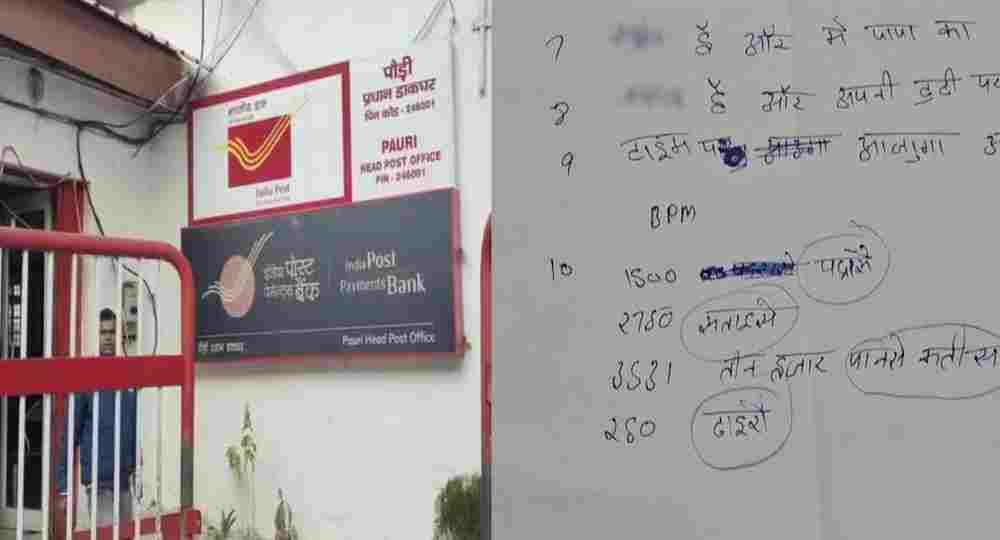 भारतीय डाक
India Post
पौड़ी
प्रधान डाकघर
पिन कोड - 246001
PAURI
HEAD POST OFFICE
PIN - 246001
इंडिया पोस्ट
पेमेन्ट्स बैंक
India Post
Payments Bank
पौड़ी प्रधान डाकघर
Pauri Head Post Office
7 है और मे पापा का
8 है और अपनी डुटी पर
9 टाइम पर आजुगा
BPM
10 1500 पद्रोसे
2760
3531 तीन हजार पानसे
260 ढाइसे